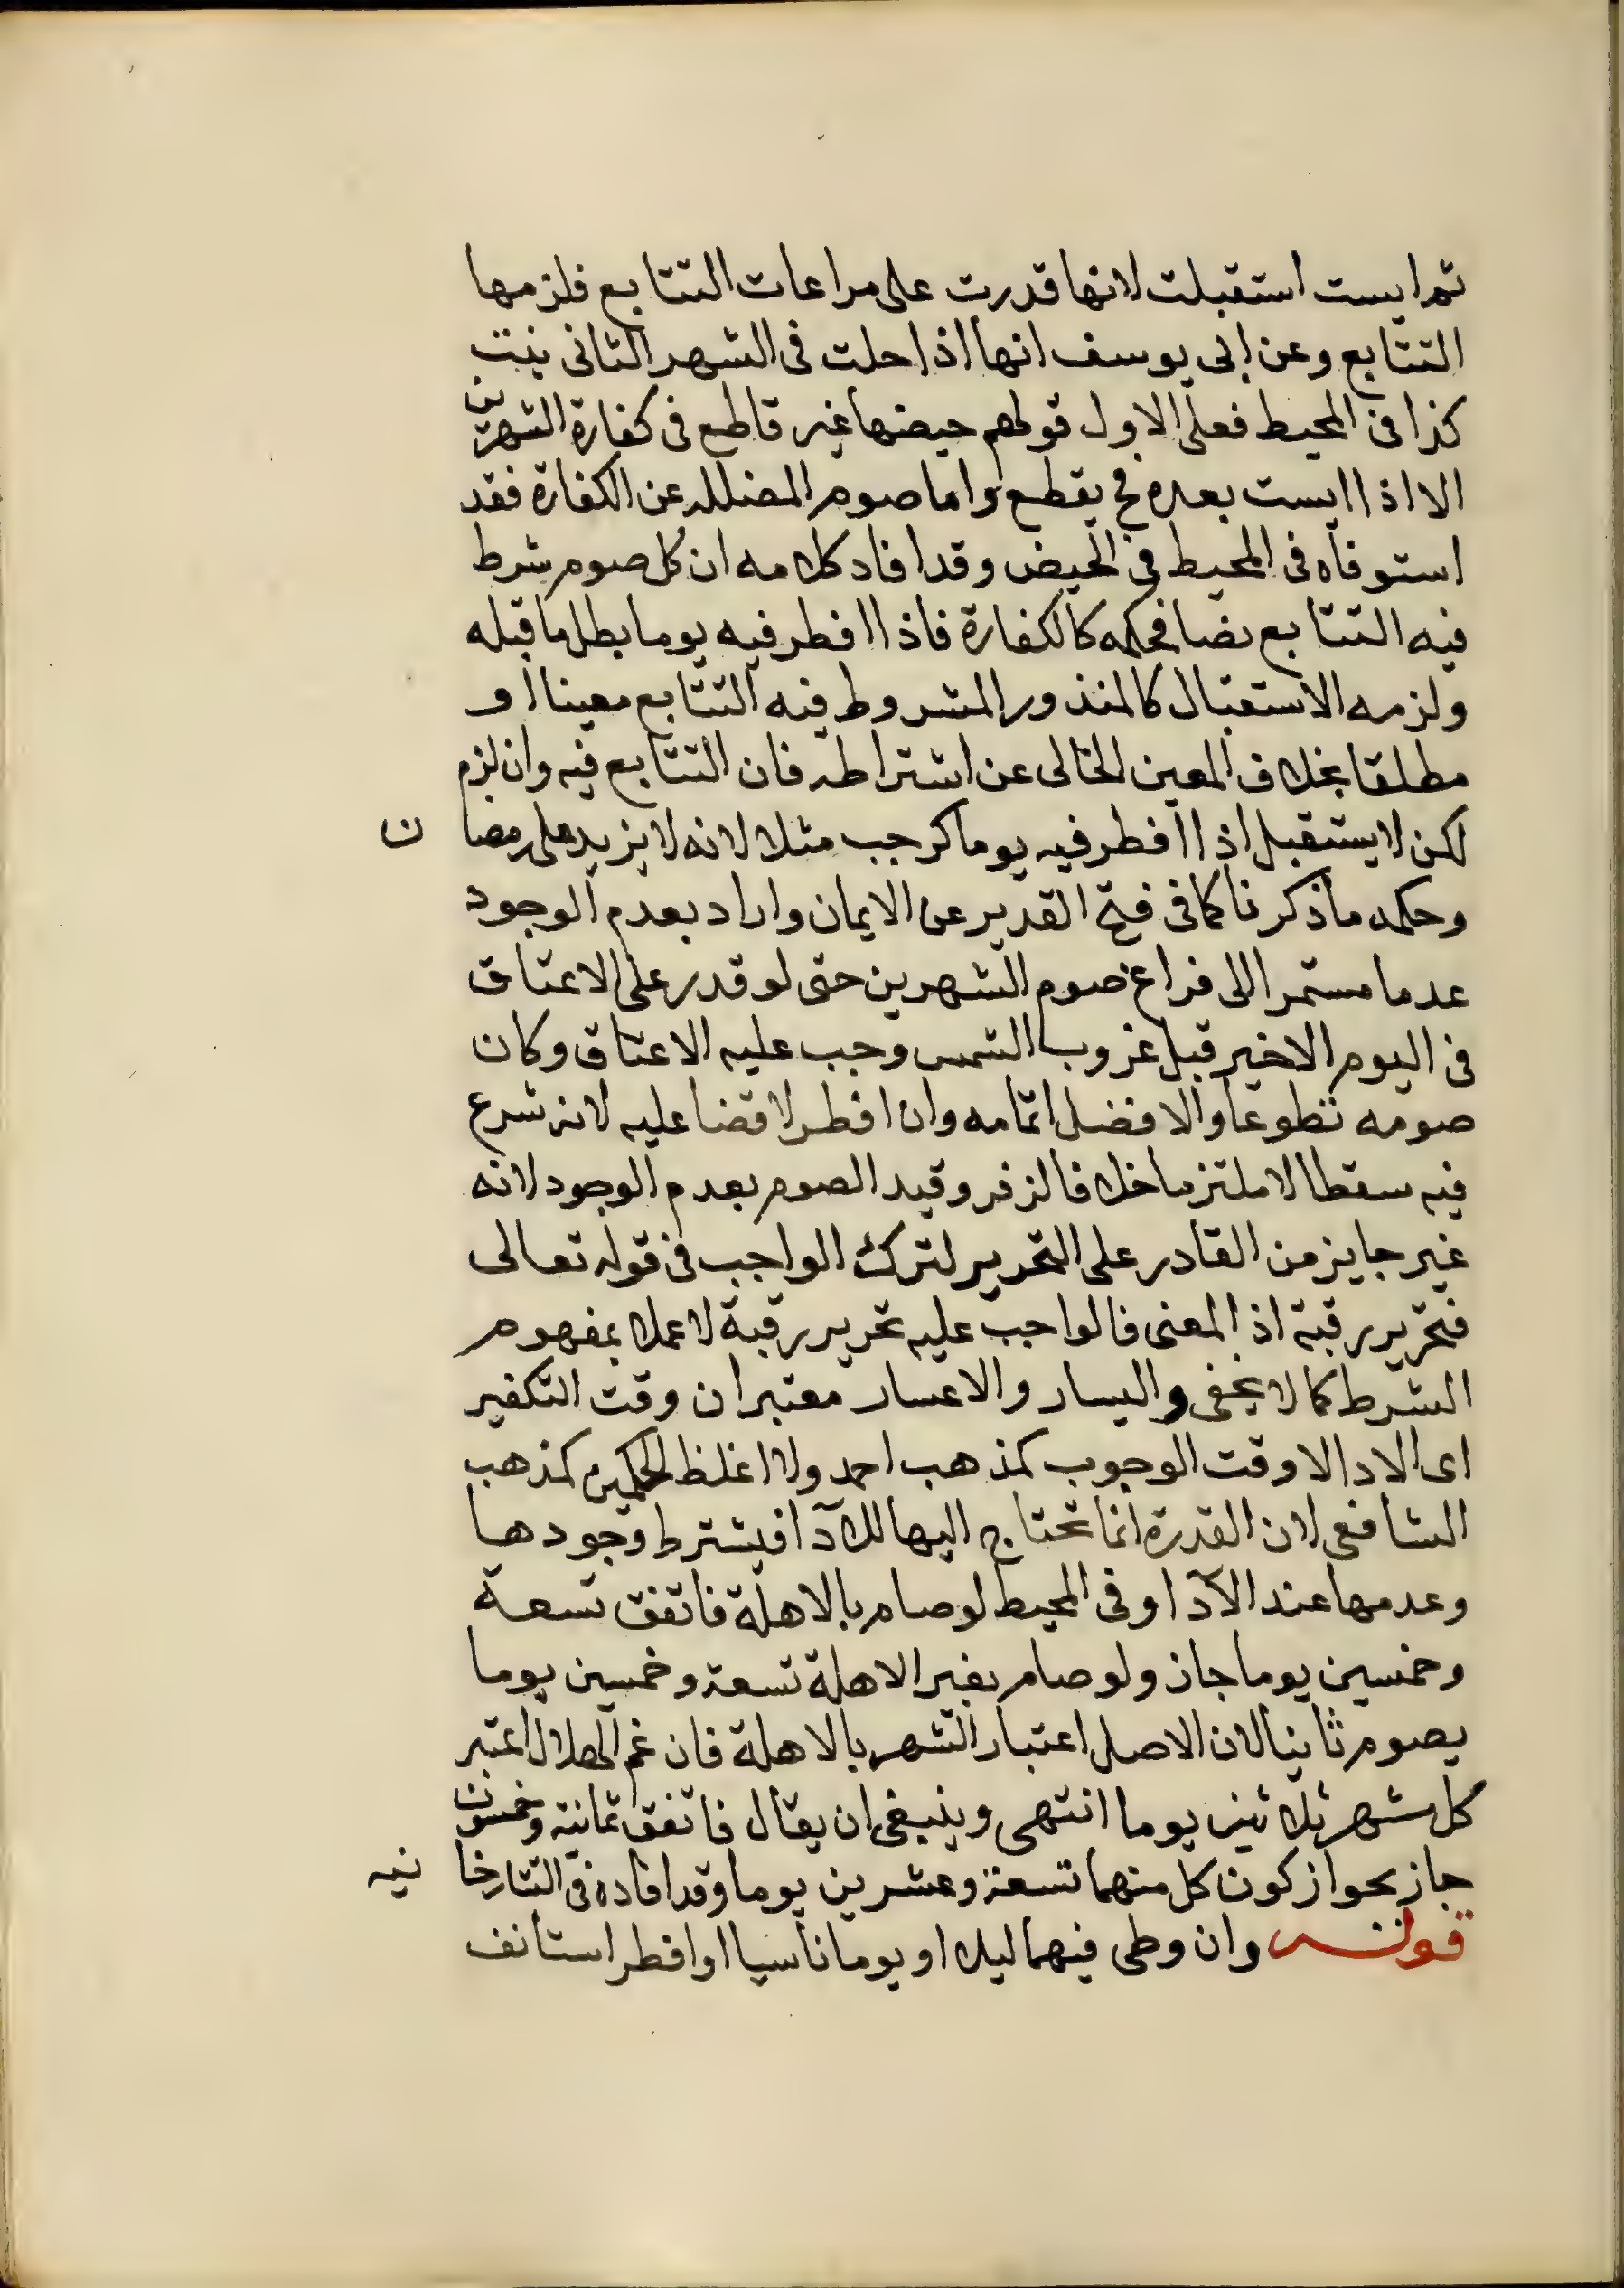 ثم ايست استقبلت لانها قدرت على مراعات التتابع فلزمها
التتابع وعن ابى يوسف انها اذا حلت فى الشهر الثانى بنت
كذا فى المحيط فعلى الاول قولهم حيضها غير قاطع فى كفارة الشهرين
الا اذا ايست بعده فح يقطع واما صوم المضلله عن الكفارة فقد
استوفاه فى المحيط فى الحيض وقد افاد كلامه ان كل صوم شرط
فيه التتابع نصا فحكمه كالكفارة فاذا افطر فيه يوما بطل ما قبله
ولزمه الاستقبال كالمنذور المشروط فيه التتابع معينا او
مطلقا بخلاف المعين الخالى عن اشتراطه فان التتابع فيه وان لزم
لكن لا يستقبل اذا افطر فيه يوما كرجب مثلا لانه لا يزيد على رمضان
وحكمه ما ذكرنا كما فى فتح القدير عن الايمان واراد بعدم الوجود
عدما مستمرا الى فراغ صوم الشهرين حتى لو قدر على الاعتاق
فى اليوم الاخير قبل غروب الشمس وجب عليه الاعتاق وكان
صومه تطوعا والافضل اتمامه وان افطر لا قضا عليه لانه شرع
فيه سقطا لا ملتزما خلافا لزفر وقيد الصوم بعدم الوجود لانه
غير جايز من القادر على التحرير لترك الواجب فى قوله تعالى
فتحرير رقبة اذ المعنى فالواجب عليه تحرير رقبة لا عملا بمفهوم
الشرط كما لا يخفى واليسار والاعسار معتبران وقت التكفير
اى الادا لا وقت الوجوب كمذهب احمد ولا اغلظ الحكمين كمذهب
الشافعى لان القدرة انما تحتاج اليها للآدا فيشترط وجودها
وعدمها عند الآدا وفى المحيط لو صام بالاهلة فاتفق تسعة
وخمسين يوما جاز ولو صام بغير الاهلة تسعة وخمسين يوما
يصوم ثانيا لان الاصل اعتبار الشهر بالاهلة فان غم الهلال اعتبر
كل شهر ثلاثين يوما انتهى وينبغى ان يقال فاتفق ثمانية وخمسون
جاز بجواز كون كل منهما تسعة وعشرين يوما وقد افاده فى التتارخانيه
قوله وان وطى فيهما ليلا او يوما ناسيا او افطر استانف